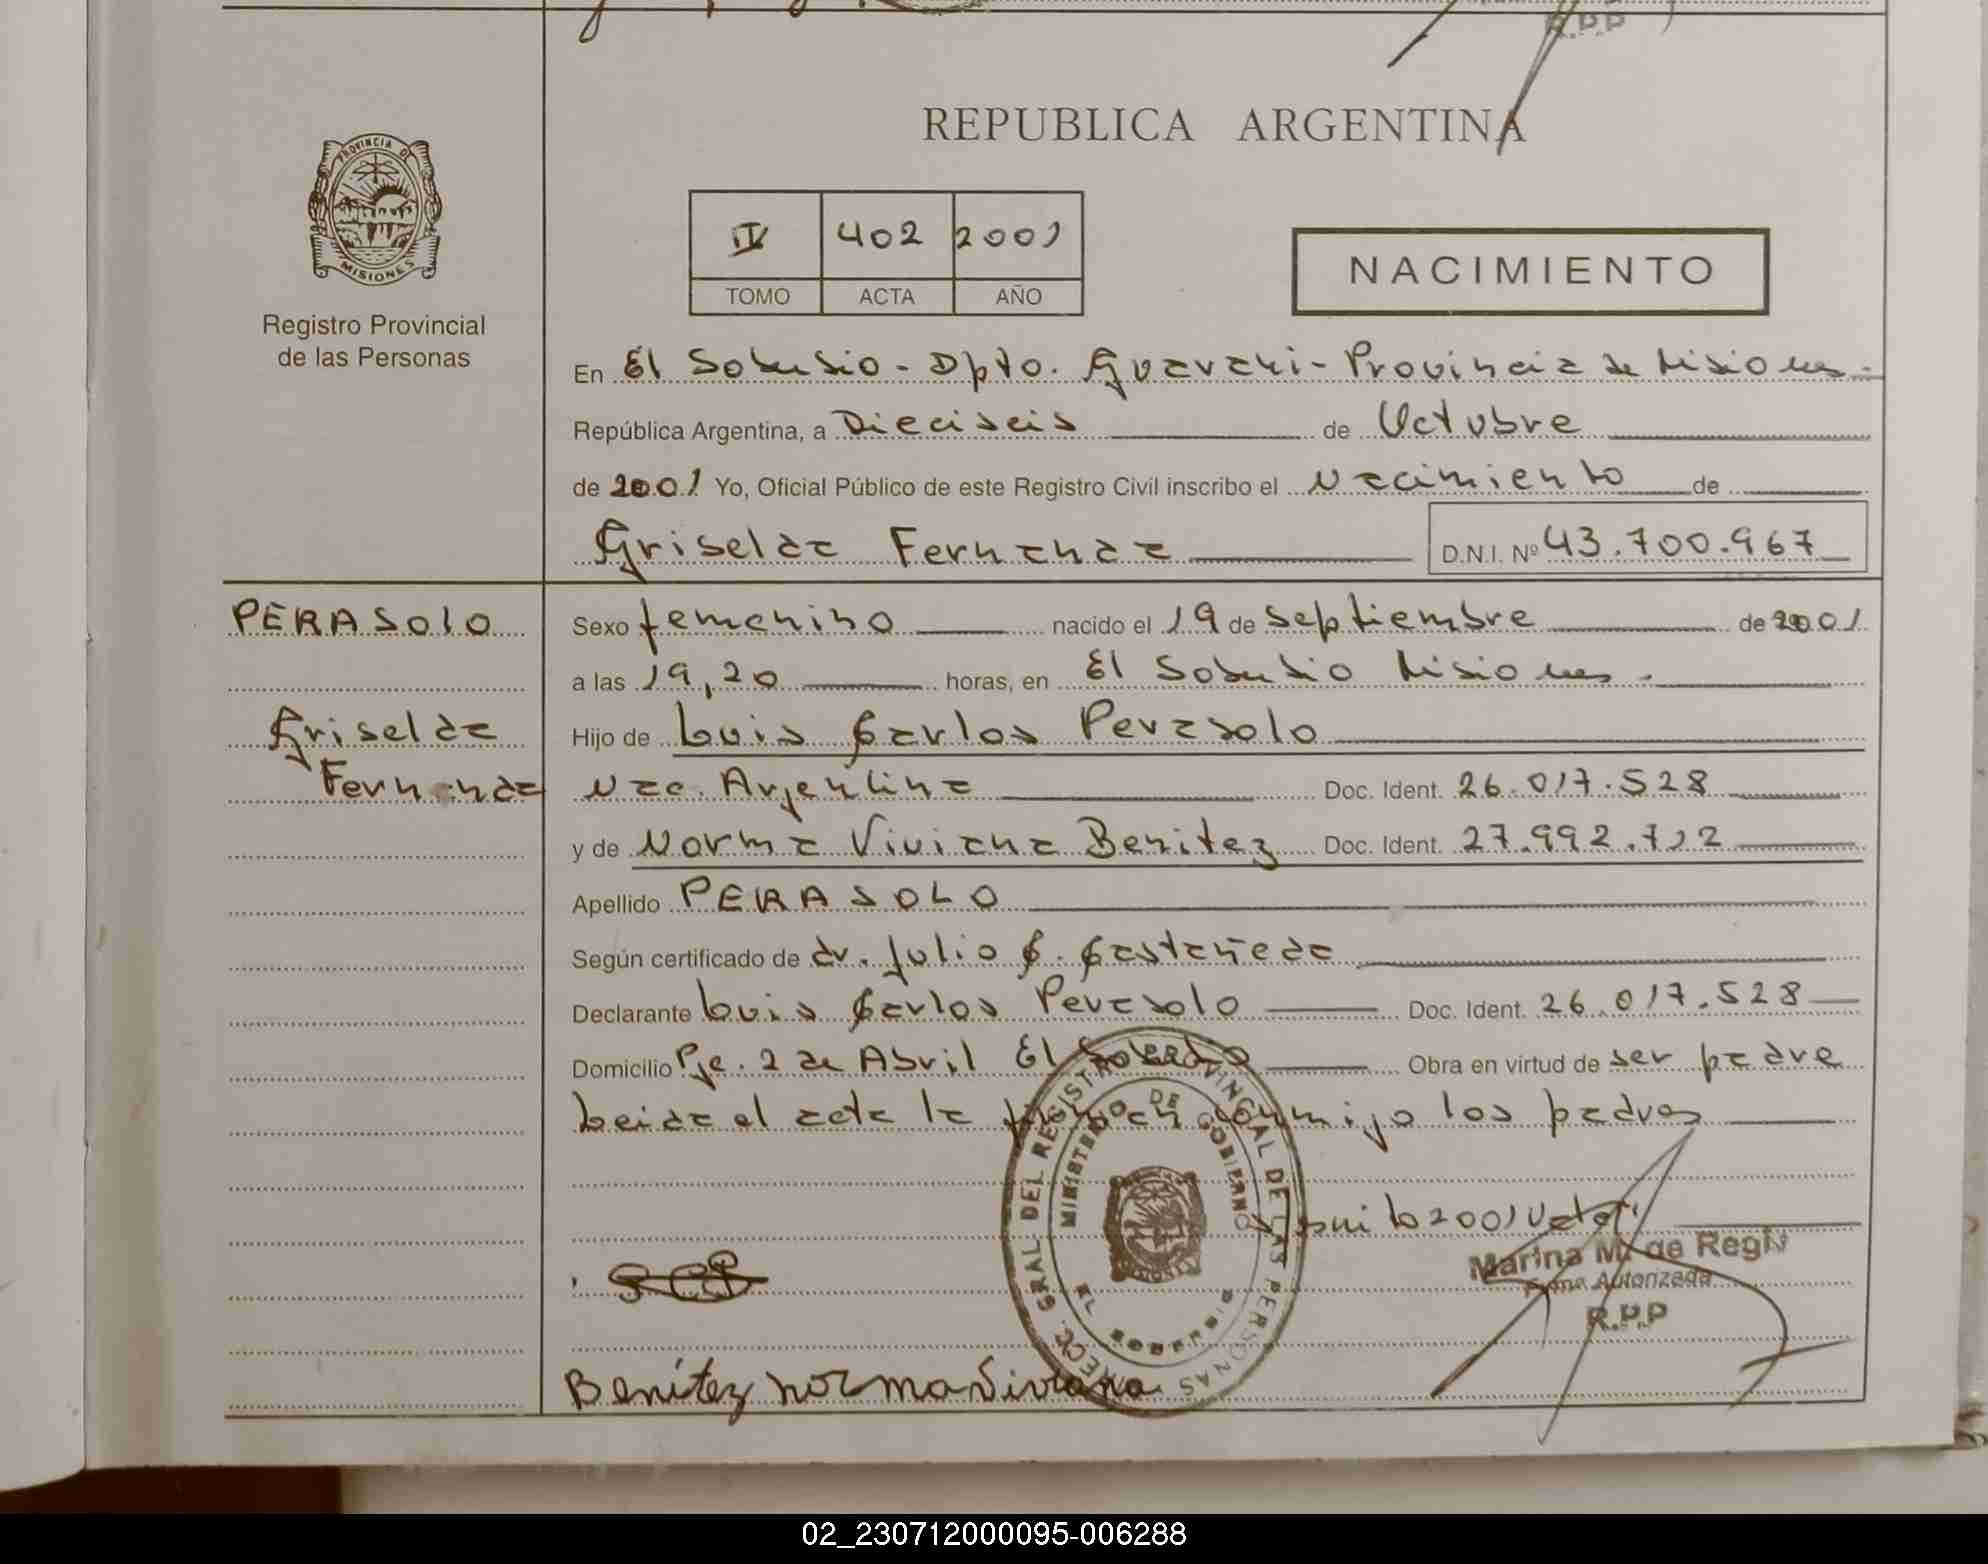 R.P.P
REPUBLICA ARGENTINA
PROVINCIA DE
MISIONES
Registro Provincial
de las Personas
IV 402 2001
TOMO ACTA AÑO
NACIMIENTO
En El Soberbio - Dpto. Guarani - Provincia de Misiones.-
República Argentina, a Dieciseis de Octubre
de 2001 Yo, Oficial Público de este Registro Civil inscribo el nacimiento de
Griselda Fernanda D.N.I. Nº 43.700.967
PERASOLO
Griselda
Fernanda
Sexo femenino nacido el 19 de septiembre de 2001
a las 19,20 horas, en El Soberbio Misiones.
Hijo de Luis Carlos Perasolo
Nac. Argentina Doc. Ident. 26.017.528
y de Norma Viviana Benitez Doc. Ident. 27.992.712
Apellido PERASOLO
Según certificado de dr. Julio C. Castañeda
Declarante Luis Carlos Perasolo Doc. Ident. 26.017.528
Domicilio Pje. 2 de Abril El Soberbio Obra en virtud de ser padre
Leida el acta la firman conmigo los padres
2001
DIRECC. GRAL. DEL REGISTRO PROVINCIAL DE LAS PERSONAS
MINISTERIO DE GOBIERNO
EL SOBERBIO
Marina M. de Regis
Firma Autorizada
R.P.P
Benitez norma Viviana
02_230712000095-006288